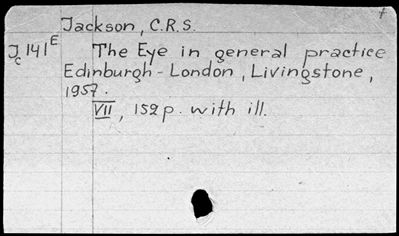 Jackson, C.R.S.
Jc 141E The Eye in general practice
Edinburgh - London, Livingstone,
1957.
VII, 152 p. with ill.